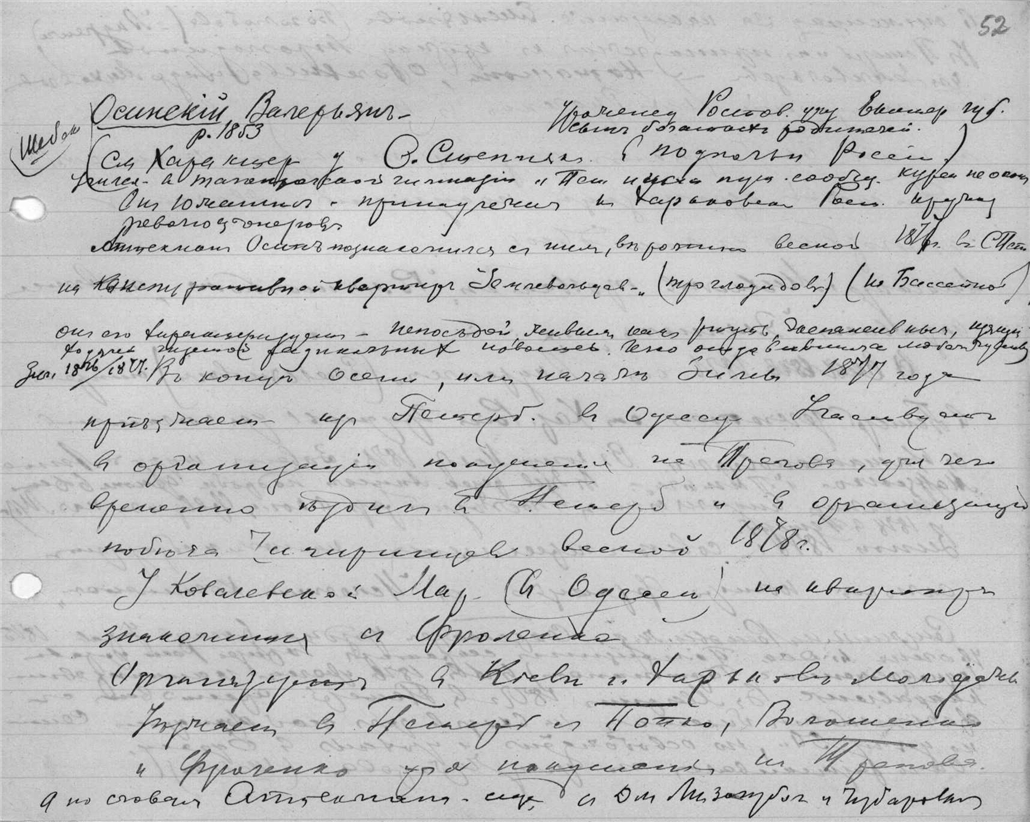 52
Осинскій Валерьянъ
р. 1853
Уроженец Ростов. уезд Екатер губ.
Сынъ богатыхъ родителей.
(см характер у С. Степняк. В подполья Россіи)
Учился в таганрогской гимназіи и Пет путей сообщ. курса не оконч
Он южанин - принадлежал к Харьковск кружку
революціонеров
Аптекман Осип познакомился с ним, вероятно весной 187 г. в С Пет
на конспиративной квартире Землевольцев - (троглодидов) (на Бассейной)
он его характеризует - непоседой, живым как ртуть,
радикальных новостей.
Зим. 1876/1877. Въ конце осени, или начале зимы 1877 года
пріезжает из Петерб. в Одессу Участвует
в организаціи покушенія на Трепова, для чего
временно ездил в Петерб и в организаціи
побега Чигиринцев весной 1878 г.
У Ковалевской Мар. (в Одессе) на квартире
знакомится с Фроленко
Организует в Кіеве и Харькове молодежь
Уезжает в Петерб с Попко, Волошенко
и Фроленко для покушенія на Трепова.
а по словам Аптекман - еще с Дм Лизогуб и Чубаровым